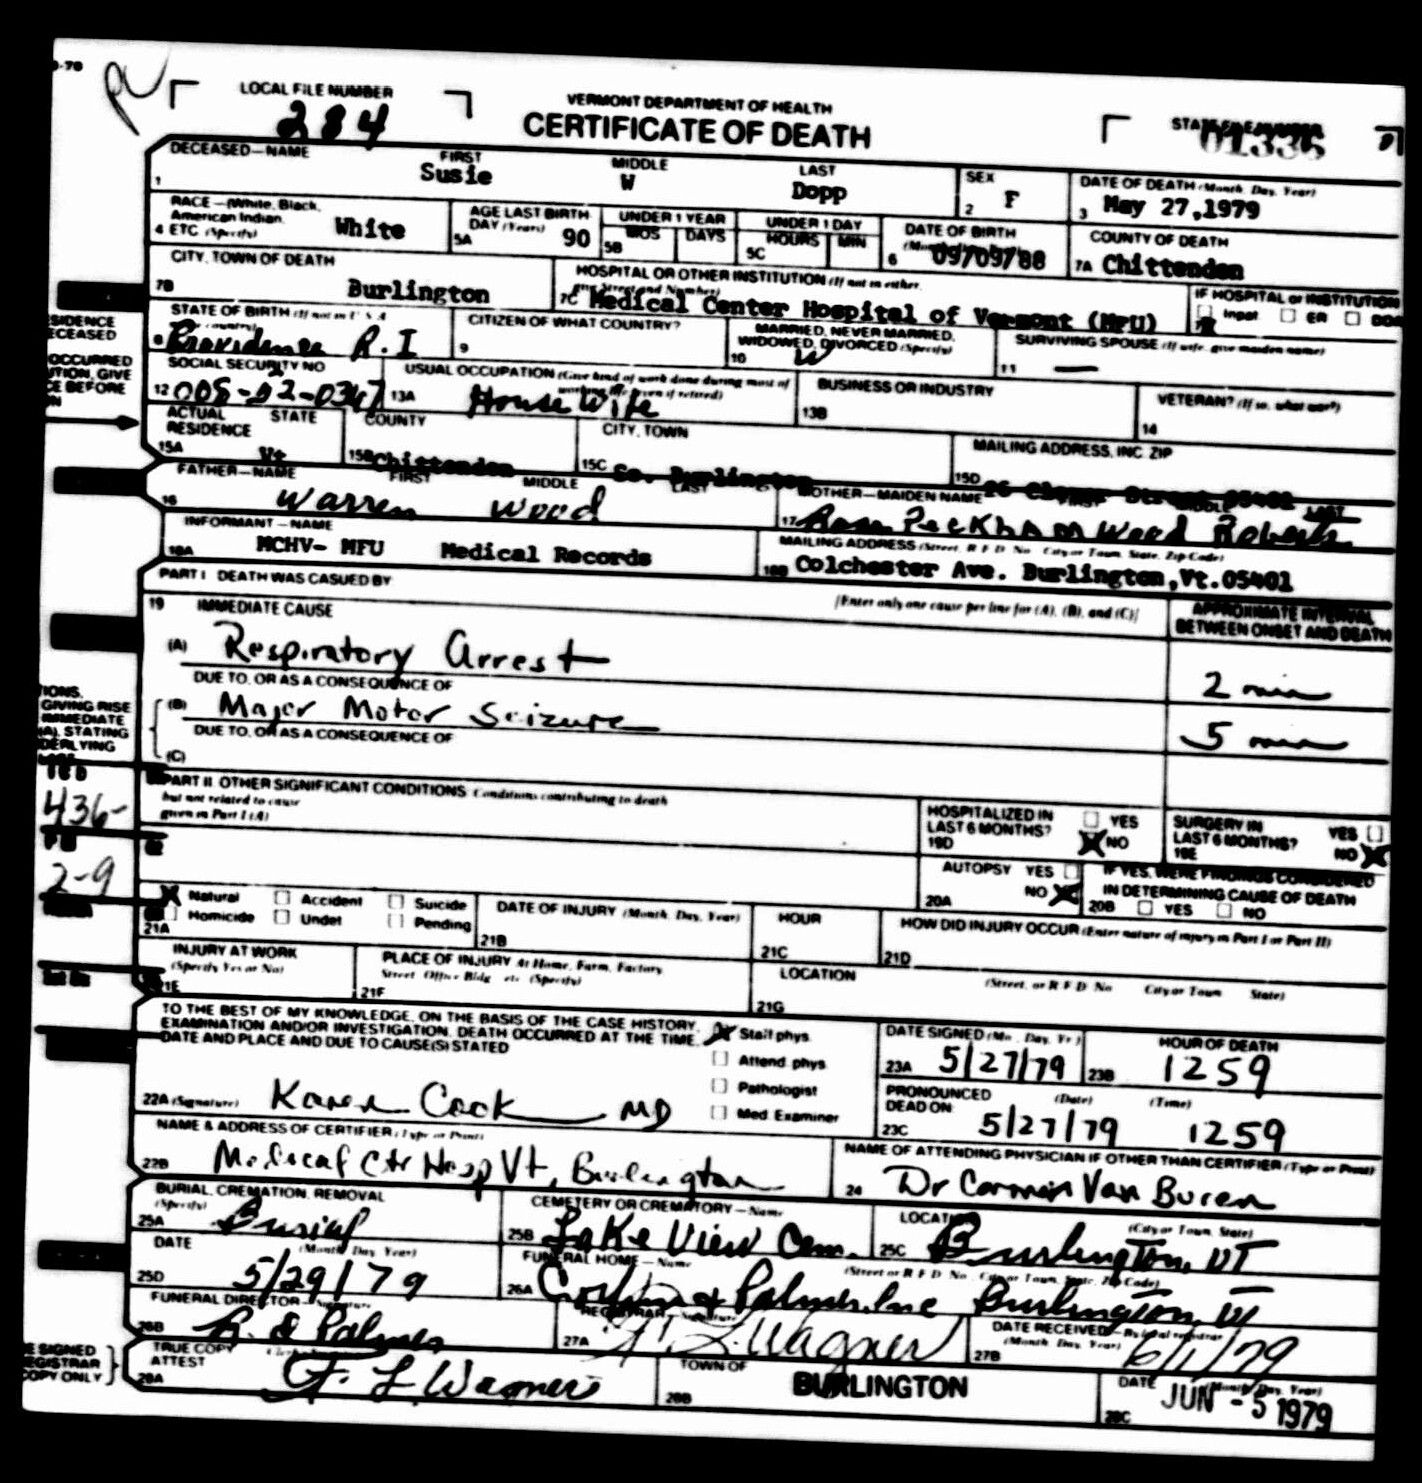 9-70
LOCAL FILE NUMBER
284
VERMONT DEPARTMENT OF HEALTH
CERTIFICATE OF DEATH
STATE FILE NUMBER
01336
DECEASED—NAME FIRST MIDDLE LAST
1 Susie W Dopp
SEX
2 F
DATE OF DEATH (Month, Day, Year)
3 May 27, 1979
RACE—(White, Black, American Indian,
4 ETC. (Specify) White
AGE LAST BIRTH
DAY (Years)
5A 90
UNDER 1 YEAR
MOS DAYS
5B
UNDER 1 DAY
HOURS MIN
5C
DATE OF BIRTH
6 09/09/88
COUNTY OF DEATH
7A Chittenden
CITY, TOWN OF DEATH
7B Burlington
HOSPITAL OR OTHER INSTITUTION (If not in either, give Street and Number)
7C Medical Center Hospital of Vermont (MFU)
IF HOSPITAL or INSTITUTION
Inpat ER DOA
STATE OF BIRTH (If not in U S A
8 Providence R.I
CITIZEN OF WHAT COUNTRY?
9
MARRIED, NEVER MARRIED,
WIDOWED, DIVORCED (Specify)
10 W
SURVIVING SPOUSE (If wife, give maiden name)
11 —
SIDENCE
ECEASED
OCCURRED
UTION, GIVE
CE BEFORE
ON
SOCIAL SECURITY NO
12 008-52-0367
USUAL OCCUPATION (Give kind of work done during most of
working life, even if retired)
13A House Wife
BUSINESS OR INDUSTRY
13B
VETERAN? (If so, what war?)
14
ACTUAL STATE
RESIDENCE
15A Vt
COUNTY
15B Chittenden
CITY, TOWN
15C So. Burlington
MAILING ADDRESS, INC. ZIP
15D Street 05401
FATHER—NAME FIRST MIDDLE LAST
16 Warren Wood
MOTHER—MAIDEN NAME FIRST MIDDLE LAST
17 Peckham Wood Roberts
INFORMANT—NAME
18A MCHV- MFU Medical Records
MAILING ADDRESS (Street, R F D No City or Town, State, Zip Code)
18B Colchester Ave. Burlington, Vt. 05401
PART I DEATH WAS CASUED BY
19 IMMEDIATE CAUSE
[Enter only one cause per line for (A), (B), and (C)]
APPROXIMATE INTERVAL
BETWEEN ONSET AND DEATH
(A) Respiratory Arrest 2 min
DUE TO, OR AS A CONSEQUENCE OF
(B) Major Motor Seizure 5 min
DUE TO, OR AS A CONSEQUENCE OF
(C)
TIONS,
GIVING RISE
IMMEDIATE
(A), STATING
DERLYING
436-
2-9
PART II OTHER SIGNIFICANT CONDITIONS Conditions contributing to death
but not related to cause
given in Part I (A)
HOSPITALIZED IN
LAST 6 MONTHS?
19D
YES
NO
SURGERY IN
LAST 6 MONTHS?
19E
YES
NO
AUTOPSY YES
NO
20A
IF YES, WERE FINDINGS CONSIDERED
IN DETERMINING CAUSE OF DEATH
20B YES NO
Natural Accident Suicide
Homicide Undet Pending
21A
DATE OF INJURY (Month, Day, Year)
21B
HOUR
21C
HOW DID INJURY OCCUR (Enter nature of injury in Part I or Part II)
21D
INJURY AT WORK
(Specify Yes or No)
21E
PLACE OF INJURY At Home, Farm, Factory
Street Office Bldg etc (Specify)
21F
LOCATION (Street, or R F D No City or Town State)
21G
TO THE BEST OF MY KNOWLEDGE, ON THE BASIS OF THE CASE HISTORY,
EXAMINATION AND/OR INVESTIGATION, DEATH OCCURRED AT THE TIME,
DATE AND PLACE AND DUE TO CAUSE(S) STATED
22A (Signature) Karen Cook MD
Staff phys
Attend phys
Pathologist
Med Examiner
DATE SIGNED (Mo, Day, Yr)
23A 5/27/79
HOUR OF DEATH
23B 1259
PRONOUNCED
DEAD ON: (Date) (Time)
23C 5/27/79 1259
NAME & ADDRESS OF CERTIFIER (Type or Print)
22B Medical Ctr Hosp Vt, Burlington
NAME OF ATTENDING PHYSICIAN IF OTHER THAN CERTIFIER (Type or Print)
24 Dr Carmin Van Buren
BURIAL, CREMATION, REMOVAL
(Specify)
25A Burial
CEMETERY OR CREMATORY—Name
25B Lake View Cem.
LOCATION (City or Town, State)
25C Burlington, VT
DATE (Month Day Year)
25D 5/29/79
FUNERAL HOME—Name (Street or R F D No, City or Town, State, Zip Code)
26A Corbin & Palmer, Inc Burlington, Vt
FUNERAL DIRECTOR—Signature
26B Palmer
REGISTRAR—Signature
27A F. L. Wagner
DATE RECEIVED—By local registrar
(Month, Day, Year)
27B 6/1/79
E SIGNED
REGISTRAR
COPY ONLY
TRUE COPY
ATTEST
28A F. L. Wagner
TOWN OF
28B BURLINGTON
DATE (Month, Day, Year)
28C JUN -5 1979